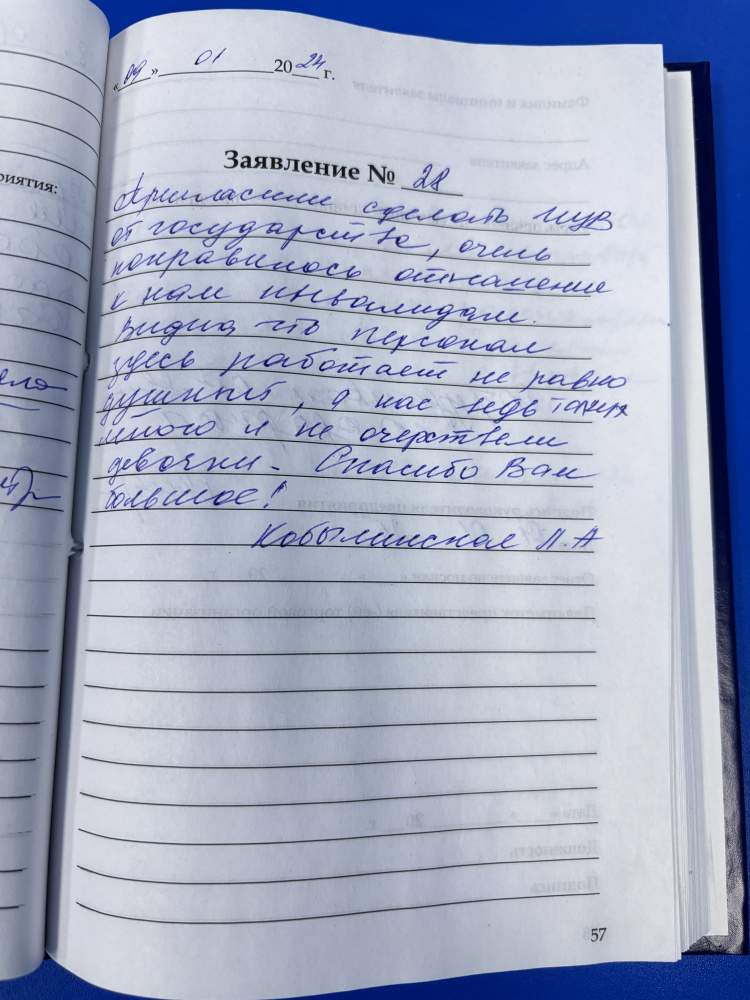 риятия:
«09» 01 2024 г.
Заявление № 28
Пригласили сделать
от государства, очень
понравилось отношение
к нам инвалидам.
Видна что персонал
здесь работает не равно
душный, а нас ведь таких
много и не очерствели
девочки. Спасибо Вам
большое!
Кобылинская Л.А
57